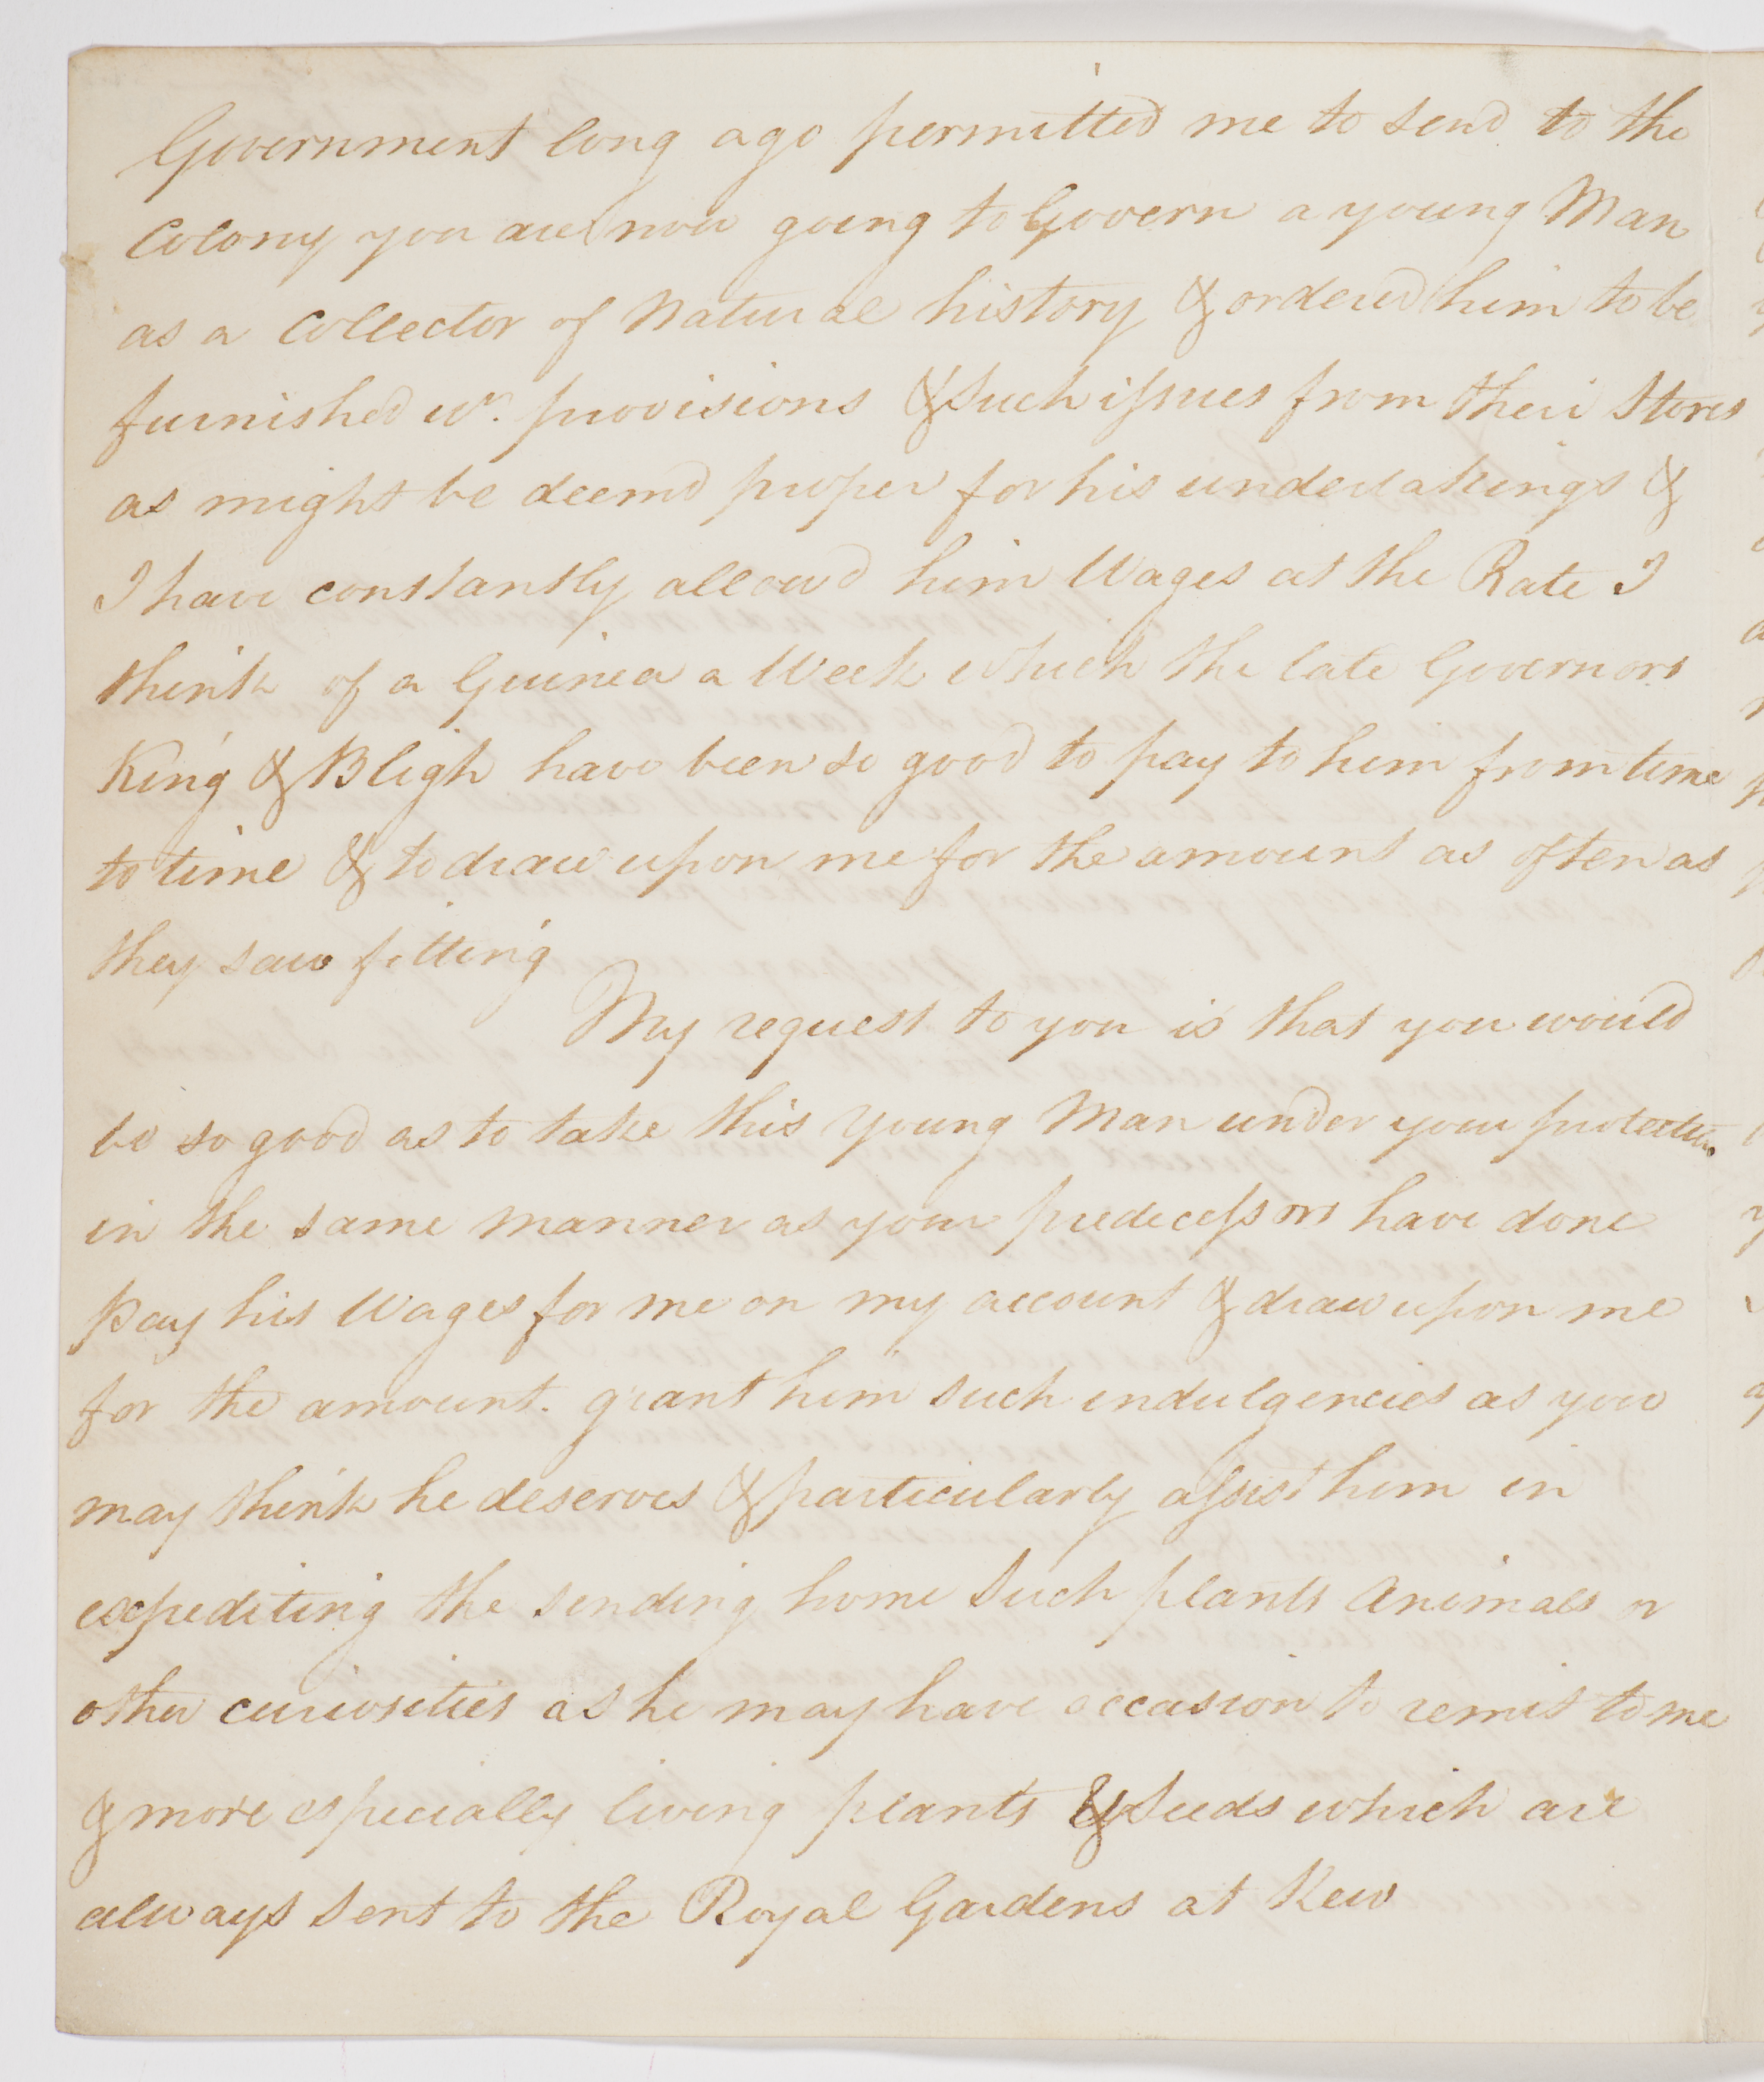 Government long ago permitted me to send to the
Colony you are now going to Govern a young Man
as a Collector of Natural history & ordered him to be
furnished wh. provisions & such issues from their Stores
as might be deemd proper for his undertakings &
I have constantly allowd him Wages at the Rate I
think of a Guinea a Week which the late Governors
King & Bligh have been so good to pay to him from time
to time & to draw upon me for the amount as often as
they saw fitting
My request to you is that you would
be so good as to take this young Man under your protection
in the same manner as your predecessors have done
pay his Wages for me on my account & draw upon me
for the amount. grant him such indulgencies as you
may think he deserves & particularly assist him in
expediting the sending home such plants animals or
other curiosities as he may have occasion to remit to me
& more especially living plants & Seeds which are
always sent to the Royal Gardens at Kew